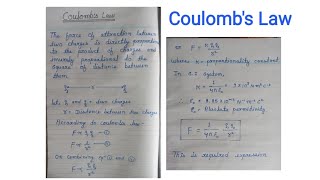 Coulomb's Law
Coulomb's Law
The force of attraction between
two charges is directly proportional
to the product of charges and
inversely proportional to the
square of distance between
them
Let q₁ and q₂ = two charges
r = Distance between two charges
According to coulomb's law
F ∝ q₁q₂
F ∝ 1/r²
On combining eqⁿ ① and ②
F ∝ q₁q₂/r²
or F = K q₁q₂/r²
where K = proportionality constant
In S.I. system
K = 1/4πε₀ = 9×10⁹ Nm²c⁻²
ε₀ = Absolute permittivity
F = 1/4πε₀ q₁q₂/r²
This is required expression